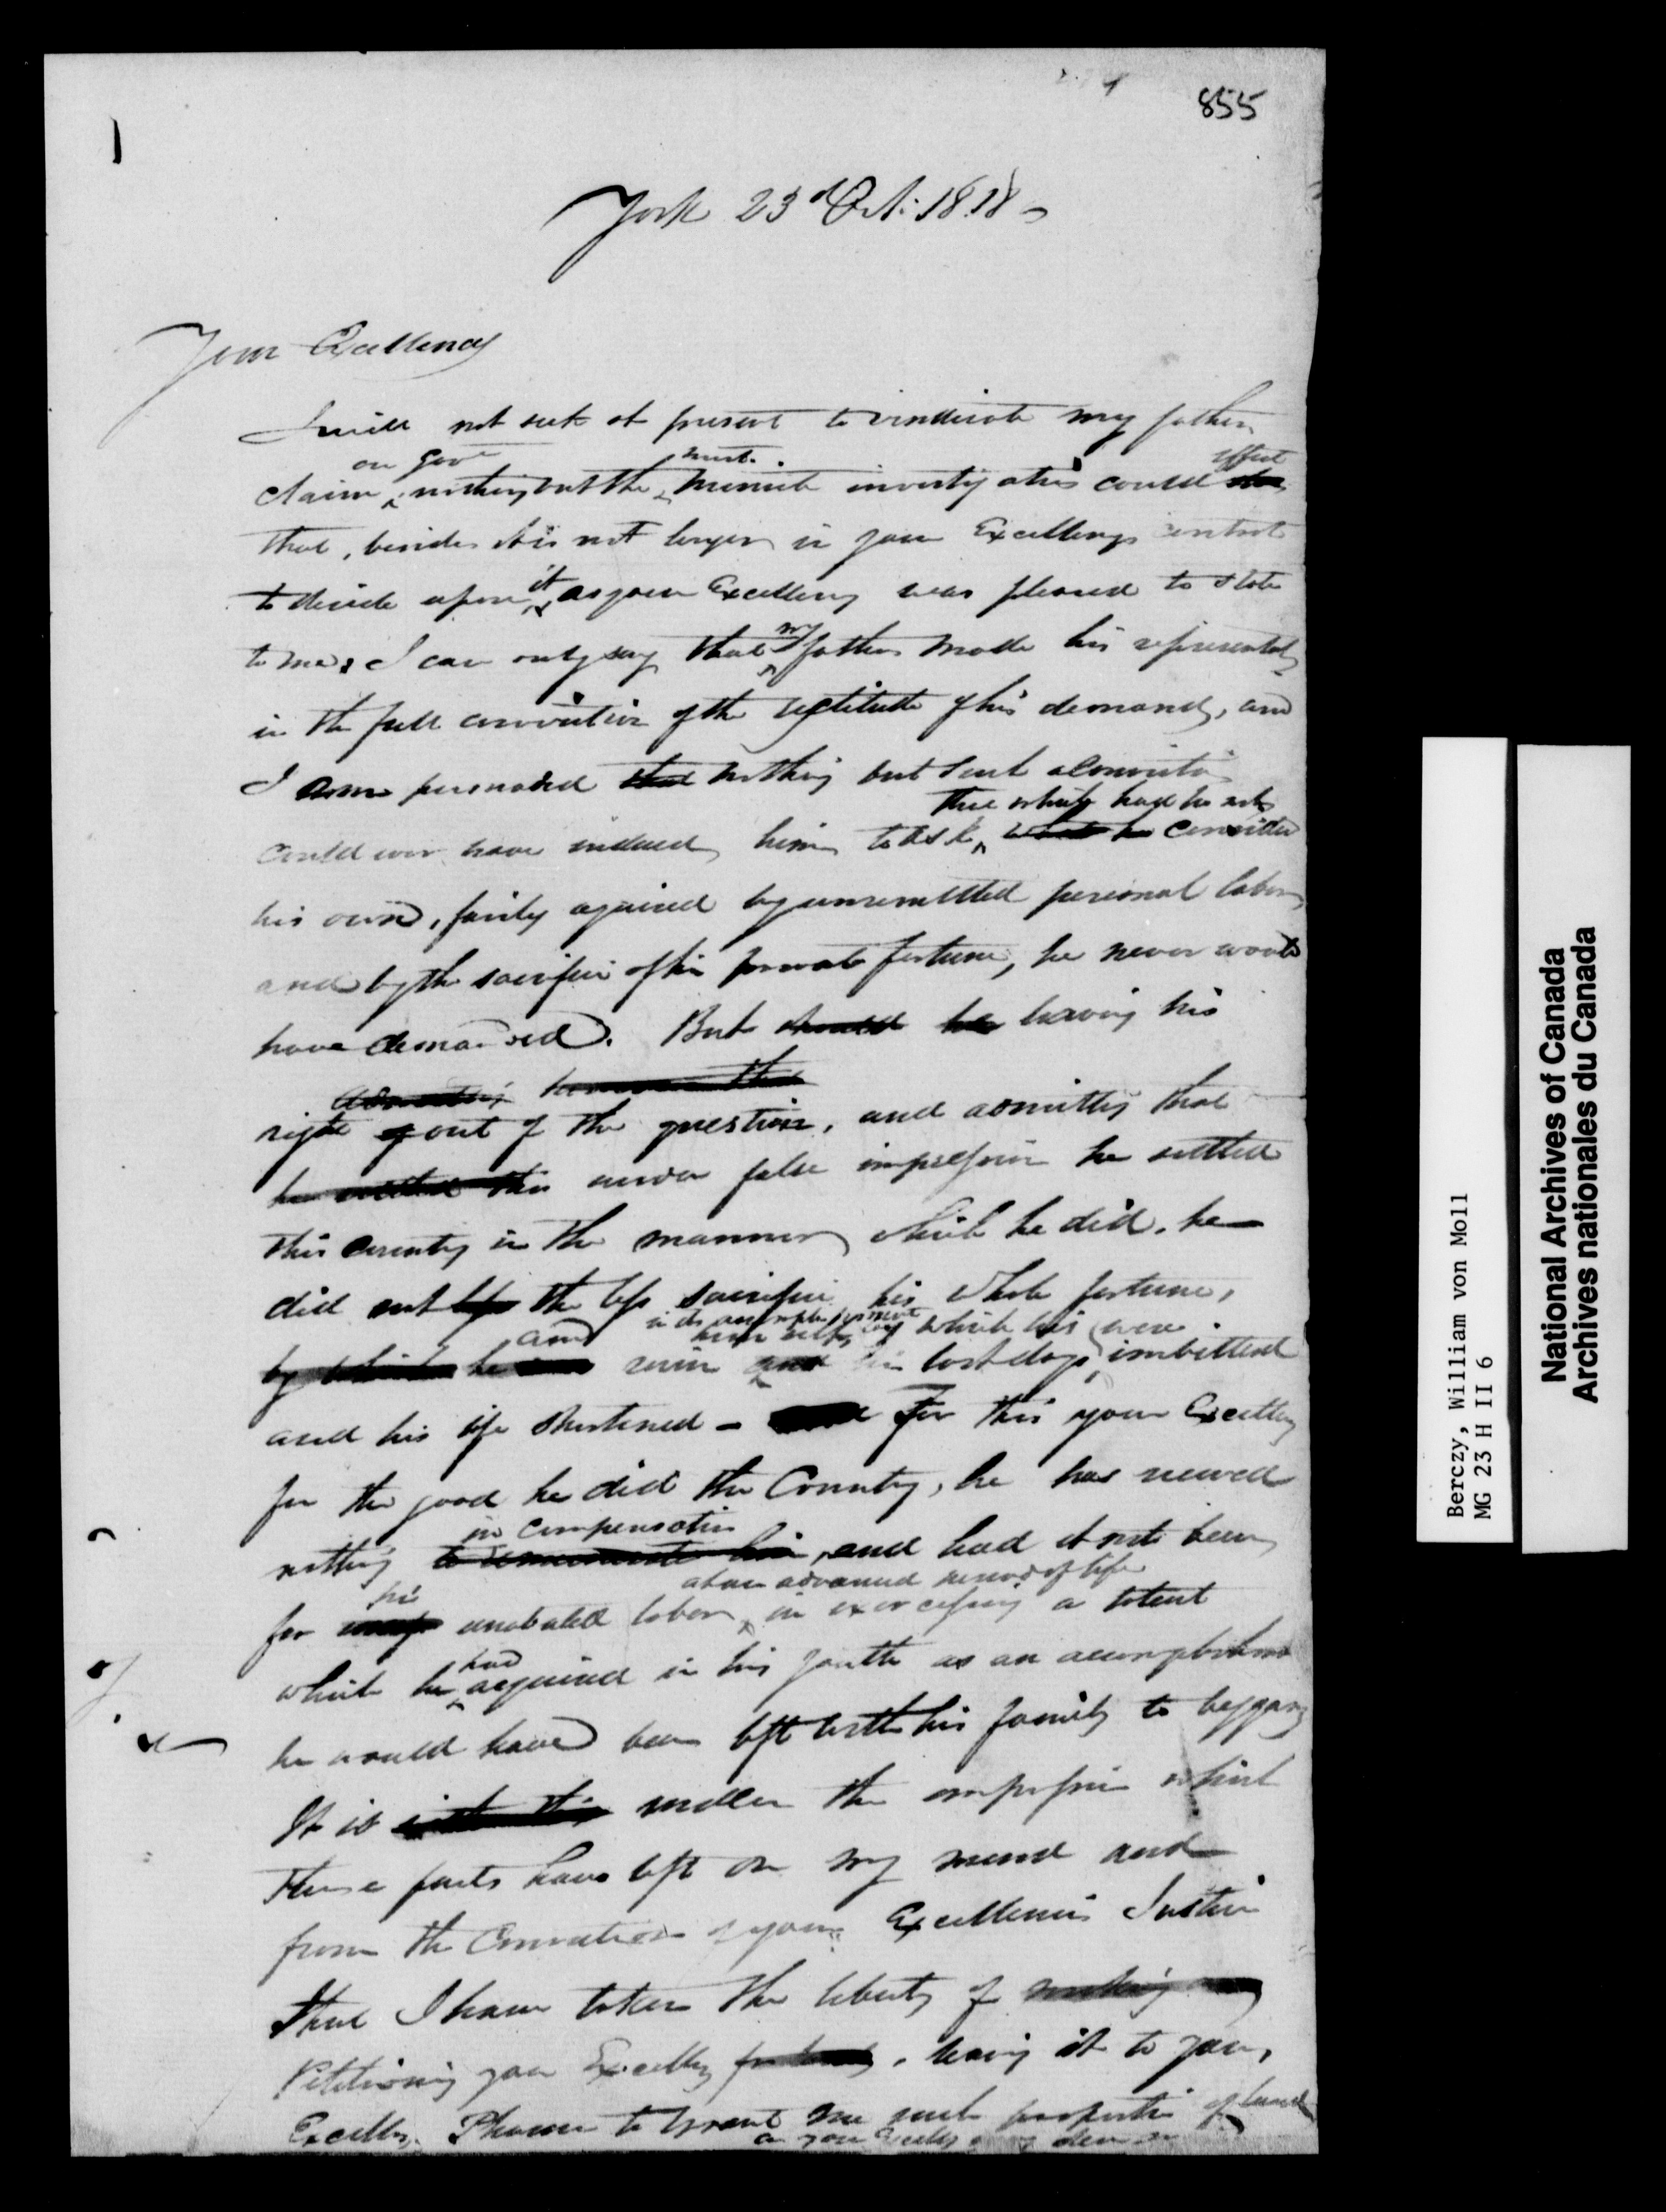 855
York 23d Oct: 1818
Your Excellency
I will not seek at present to vindicate my fathers
on Govt most effect
claim, nothing but the minute investigation could
that, besides it is not longer in your Excellencys control
to decide upon it, as your Excellency was pleased to state
to me; I can only say that my father made his representat
in the full conviction of the rectitude of his demands, and
I am persuaded that nothing but such a conviction
that which had he not
could ever have induced him to ask, considered
his own, fairly aquired by unremitted personal labor
and by the sacrifice of his private fortune, he never would
have demanded. But should he leaving his
admitting however that
right out of the question, and admitting that
he settled this under false impression he settled
this Country in the manner which he did, he
did not the less sacrifice his whole fortune,
in its accomplishment
by which he and ruin himself, by which his last days were imbittered
and his life shortened - For this your Excellency
for the good he did the Country, he has received
in compensation
nothing to remunerate him, and had it not been
at an advanced period of life
for his unabated labor, in exercising a talent
which he had acquired in his youth as an accomplishmt
he would have been left with his family to beggary
It is under the impression which
these facts have left on my mind and
from the Conviction of your Excellencies Justice
that I have taken the liberty of making my
Petitioning your Excellency, leaving it to your
Excellcy Pleasure to grant me such proportion of land
as your Excellcy may deem
Berczy, William von Moll
MG 23 H II 6
National Archives of Canada
Archives nationales du Canada